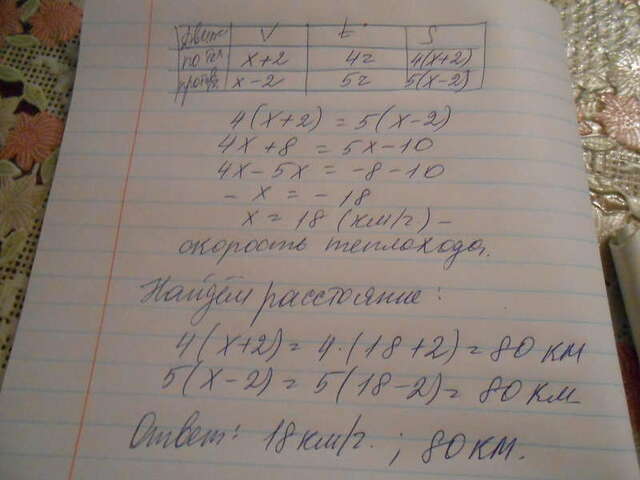 Движ V t S
по теч x+2 4ч 4(x+2)
против x-2 5ч 5(x-2)
4(x+2) = 5(x-2)
4x+8 = 5x-10
4x-5x = -8-10
-x = -18
x = 18 (км/ч) -
скорость теплохода.
Найдём расстояние:
4(x+2) = 4·(18+2) = 80 км
5(x-2) = 5(18-2) = 80 км
Ответ: 18 км/ч. ; 80 км.